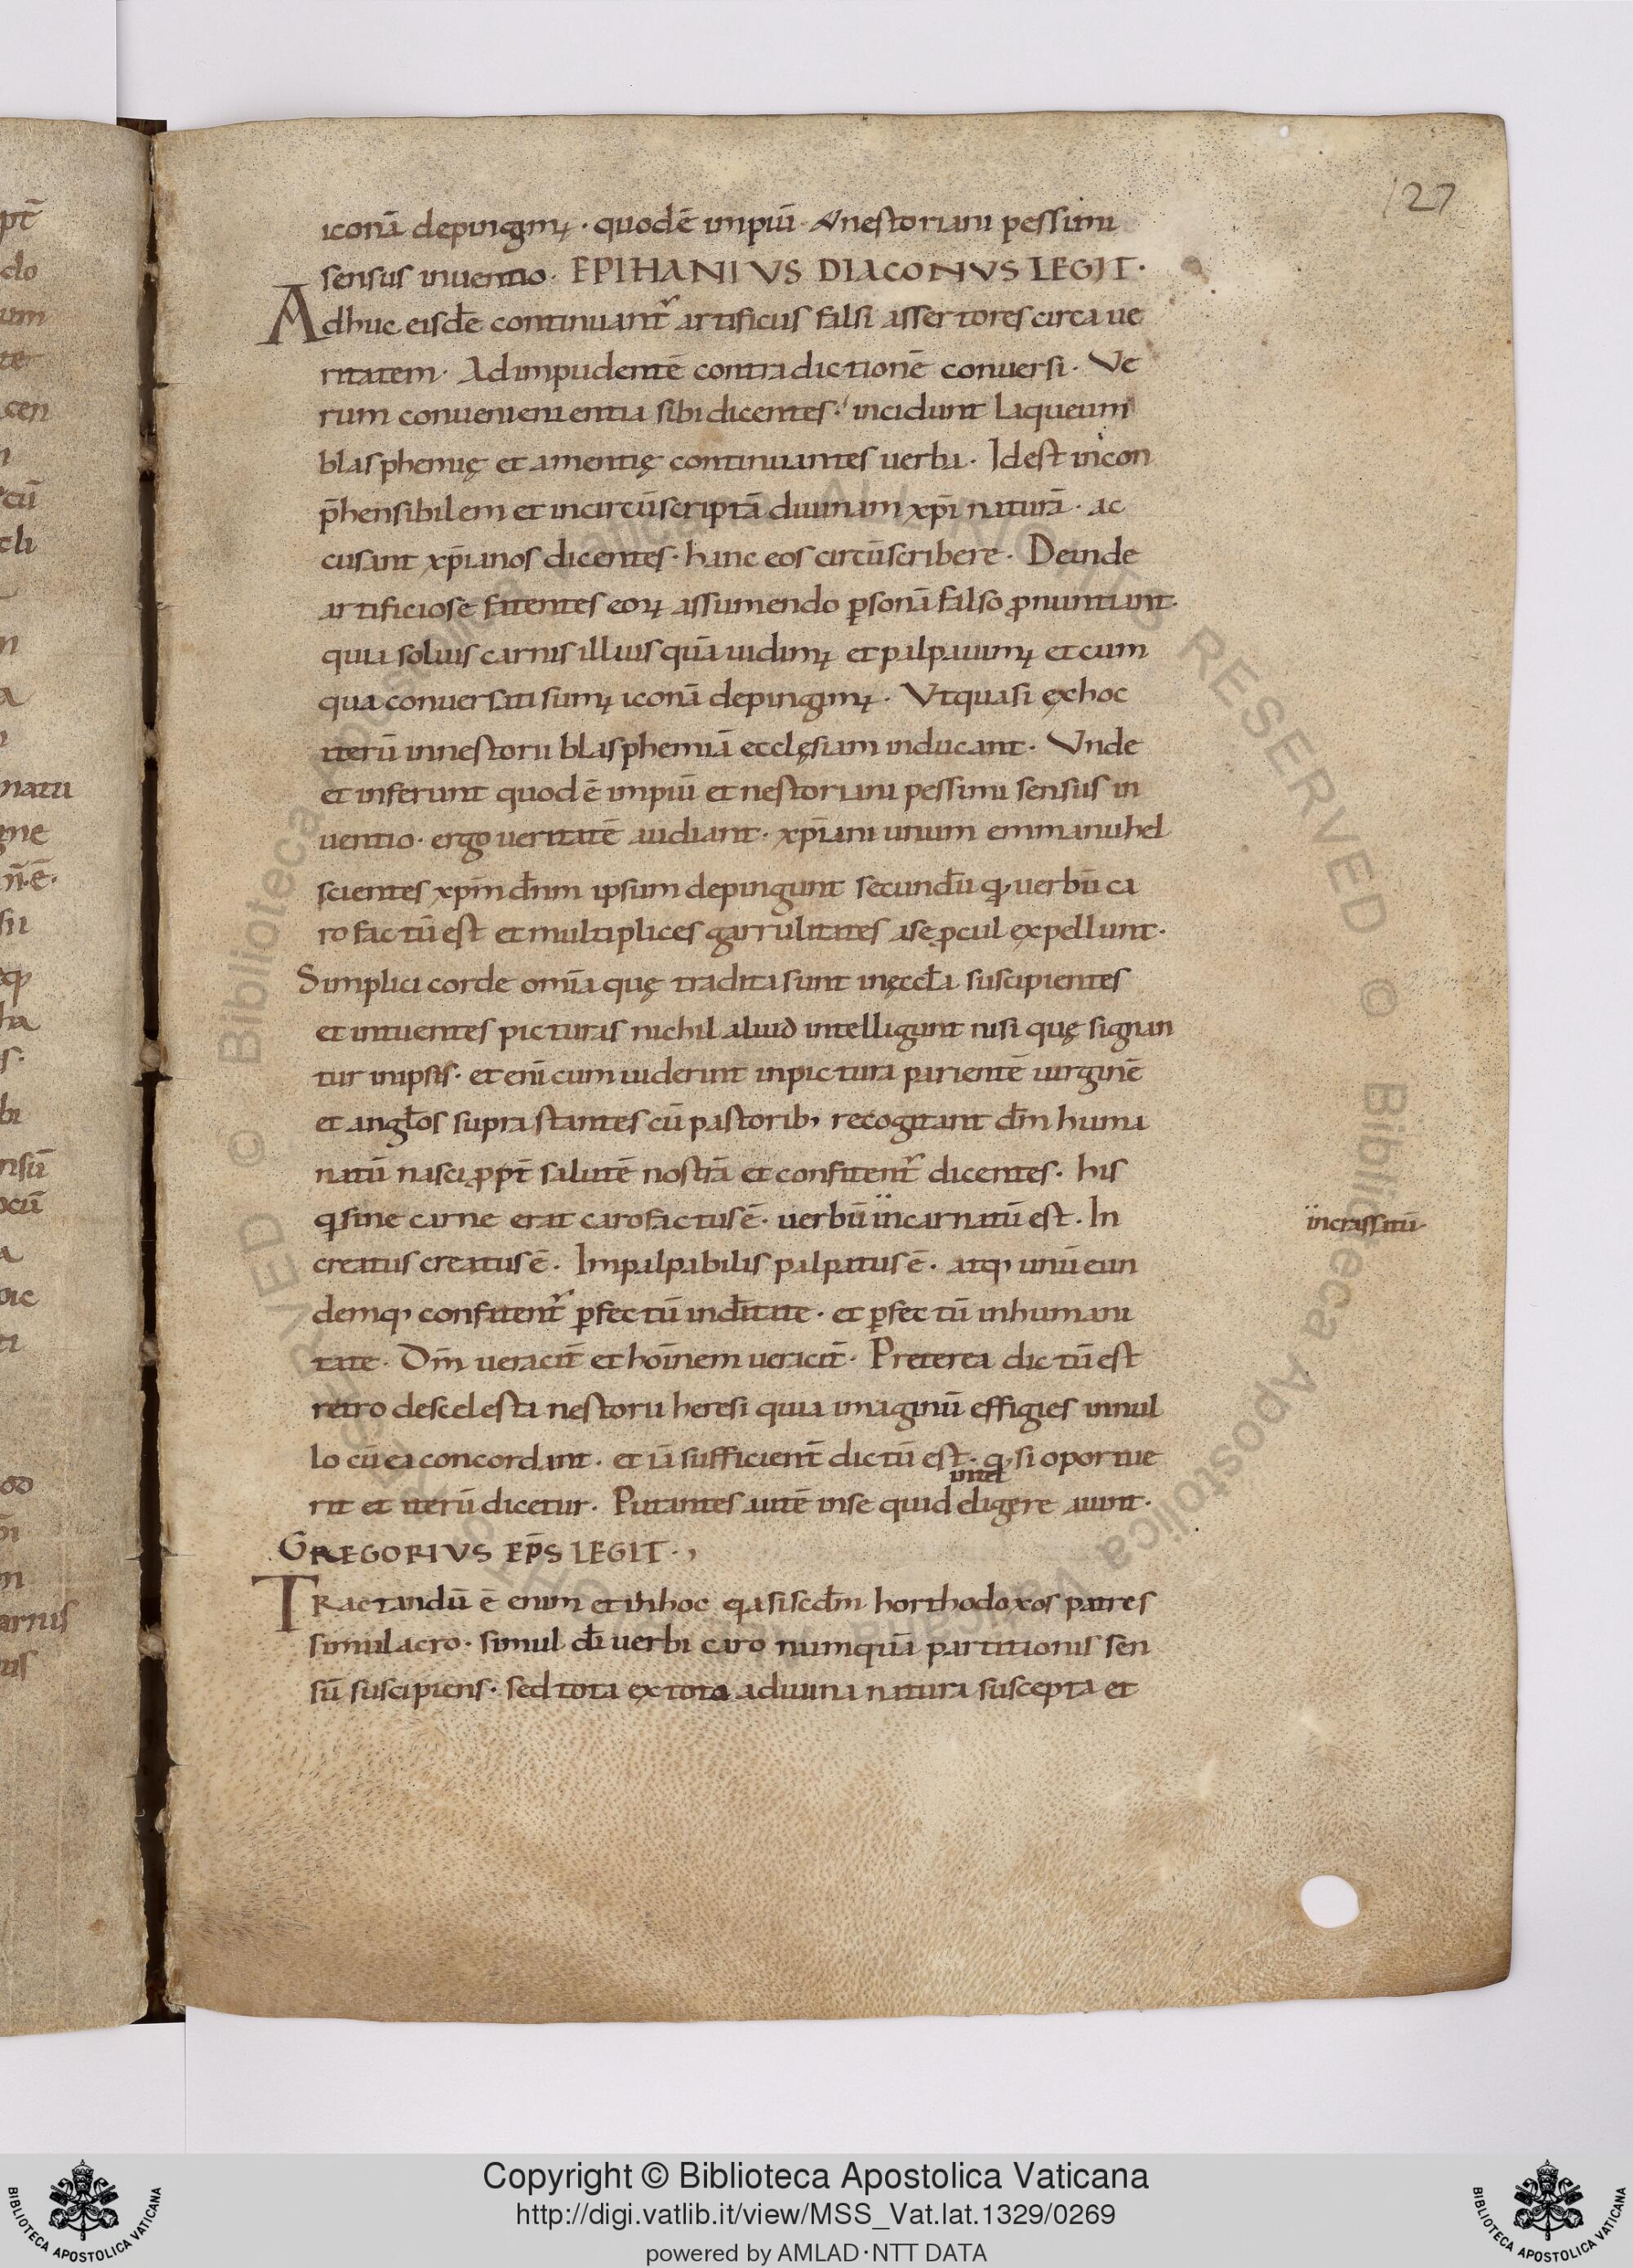 127
iconā depingimꝰ · quod ē impiū · & nestoriani pessimi
sensus inuentio · EPIHANIVS DIACONVS LEGIT ·
Adhuc eisdē continuant᷑ artificiis falsi assertores circa ue
ritatem · Ad impudentē contradictionē conuersi · Ve
rum conuenienientia sibi dicentes · incidunt laqueum
blasphemię et amentię continuantes uerba · Id est incon
p̄hensibilem et incircūscriptā diuinam xp̄i naturā · ac
cusant xp̄ianos dicentes · hanc eos circūscribere · Deinde
artificiose fatentes eoꝝ assumendo ꝑsonā falso ꝓnuntiant ·
quia solius carnis illius quā uidimꝰ et palpauimꝰ et cum
qua conuersati sumꝰ iconā depingimꝰ · Vt quasi ex hoc
iterū in nestorii blasphemiā ecclęsiam inducant · Vnde
et inferunt quod ē impiū et nestoriani pessimi sensus in
uentio · ergo ueritatē audiant · xp̄iani unum emmanuhel
scientes xp̄m dn̄m ipsum depingunt secundū qđ uerbū ca
ro factū est et multiplices garrulitates a se ꝓcul expellunt ·
Simplici corde omīa quę tradita sunt in ęccła suscipientes
et intuentes picturas nichil aliud intelligunt nisi quę signan
tur in ipsis · et enī cum uiderint in pictura parientē uirginē
et angłos supra stantes cū pastorib; recogitant dm̄ huma
natū nasci ꝓpt̄ salutē nostrā et confitent᷑ dicentes · his
q sine carne erat caro factus ē · uerbū incarnatū est · In
incrassatū ·
creatus creatus ē · Impalpabilis palpatus ē · atq; unū eun
demq; confitent᷑ ꝑfectū in dēitate · et ꝑfectū in humani
tate · Dm̄ ueracit̄ et hoīnem ueracit̄ · Preterea dictū est
retro de scelesta nestorii heresi quia imaginū effigies in nul
lo cū ea concordant · et iā sufficient̄ dictū est · q; si oportue
rit et iterū dicetur · Putantes autē in se quid eligere aiunt ·
intel
GREGORIVS EP̄S LEGIT ·,
Tractandū ē enim et in hoc qa si scdm̄ horthodoxos patres
simul acro · simul dī uerbi caro numquā partitionis sen
sū suscipiens · sed tota ex tota a diuina natura suscepta et
pt̄
do
um
te
cen
cū
natu
gne
n̄ · ē ·
nsū
ocū
arnus
© Biblioteca Apostolica Vaticana ALL RIGHTS RESERVED
© Biblioteca Apostolica Vaticana ALL RIGHTS RESERVED
Copyright © Biblioteca Apostolica Vaticana
http://digi.vatlib.it/view/MSS_Vat.lat.1329/0269
powered by AMLAD·NTT DATA
BIBLIOTECA APOSTOLICA VATICANA
BIBLIOTECA APOSTOLICA VATICANA